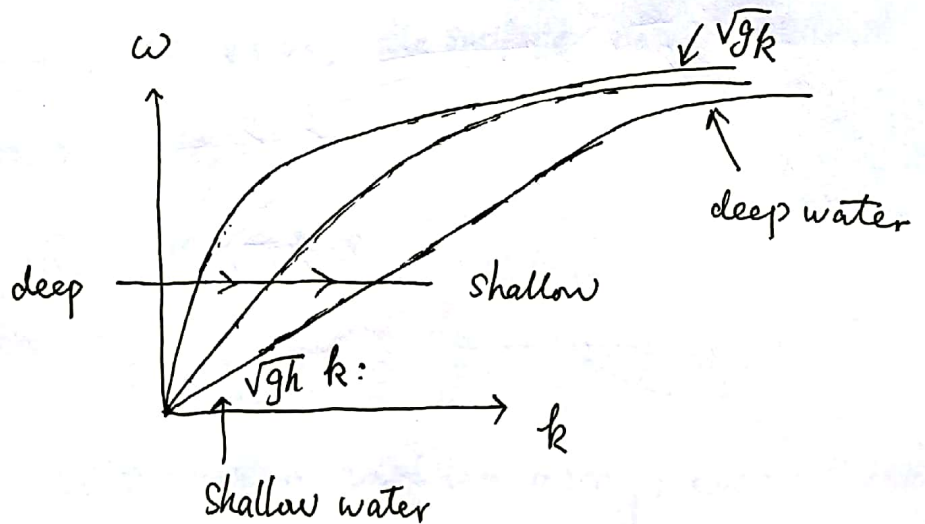 ω
√gk
deep water
deep
Shallow
√gh k:
k
Shallow water